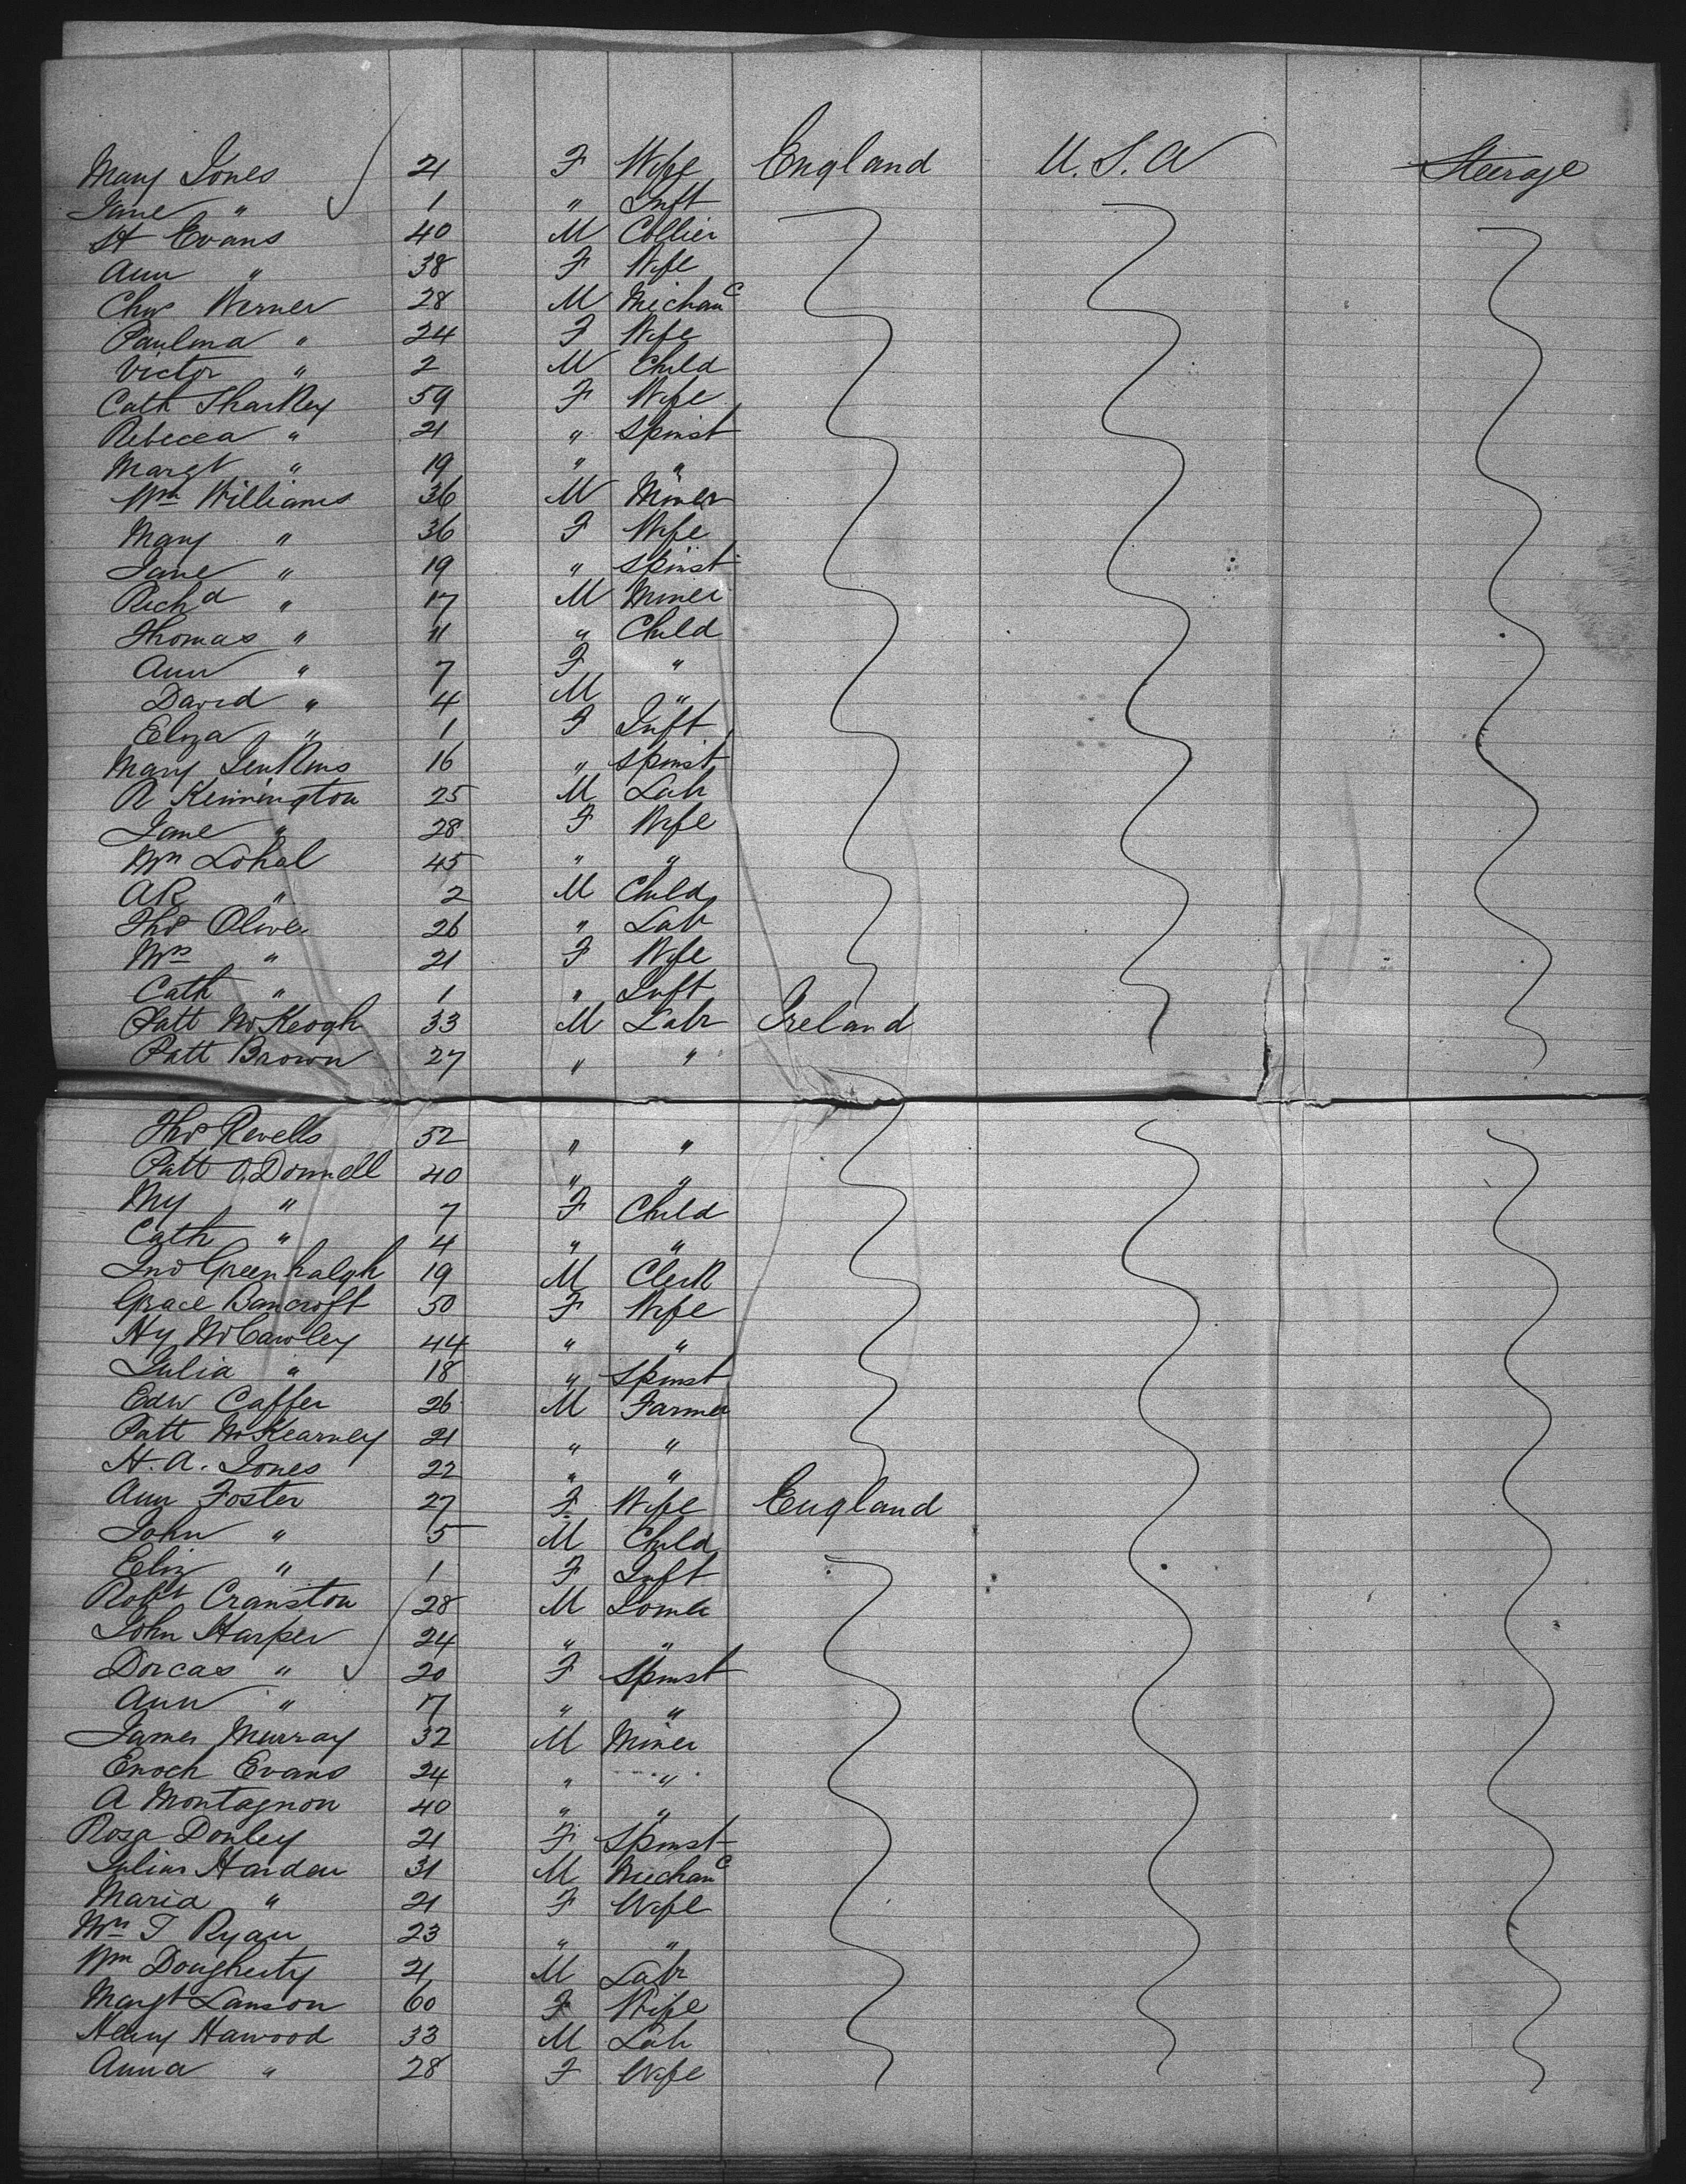 Mary Jones 21 F Wife England U.S.A Steerage
Jane " 1 " Inft
H Evans 40 M Collier
Ann " 38 F Wife
Chas Werner 28 M Mechanc
Paulina " 24 F Wife
Victor " 2 M Child
Cath Sharkey 59 F Wife
Rebecca " 21 " Spinst
Margt " 19 " "
Wm Williams 36 M Miner
Mary " 36 F Wife
Jane " 19 " Spinst
Richd " 17 M Miner
Thomas " 11 " Child
Ann " 7 F "
David " 4 M "
Eliza " 1 F Inft
Mary Jenkins 16 " Spinst
R Kennington 25 M Lab
Jane " 28 F Wife
Mrs Lohal 45 " "
AR " 2 M Child
Thos Oliver 26 " Lab
Mrs " 21 F Wife
Cath " 1 " Inft
Patt McKeogh 33 M Labr Ireland
Patt Brown 27 " "
Thos Revells 52 " "
Patt O.Donnell 40 " "
My " 7 F Child
Cath " 4 " "
Jno Greenhalgh 19 M Clerk
Grace Bancroft 50 F Wife
Hy McCawley 44 " "
Julia " 18 " Spinst
Edw Caffer 26 M Farmer
Patt McKearney 21 " "
H. A. Jones 22 " "
Ann Foster 27 F Wife England
John " 5 M Child
Eliz " 1 F Inft
Robt Cranston 28 M
John Harper 24 " "
Dorcas " 20 F Spinst
Ann " 17 " "
James Murray 32 M Miner
Enoch Evans 24 " "
A Montagnon 40 " "
Rosa Donley 21 F Spinst
Julius Harden 31 M Mechanc
Maria " 21 F Wife
Mrs T Ryan 23 " "
Wm Dougherty 21 M Labr
Margt Lawson 60 F Wife
Henry Hawood 33 M Lab
Anna " 28 F Wife